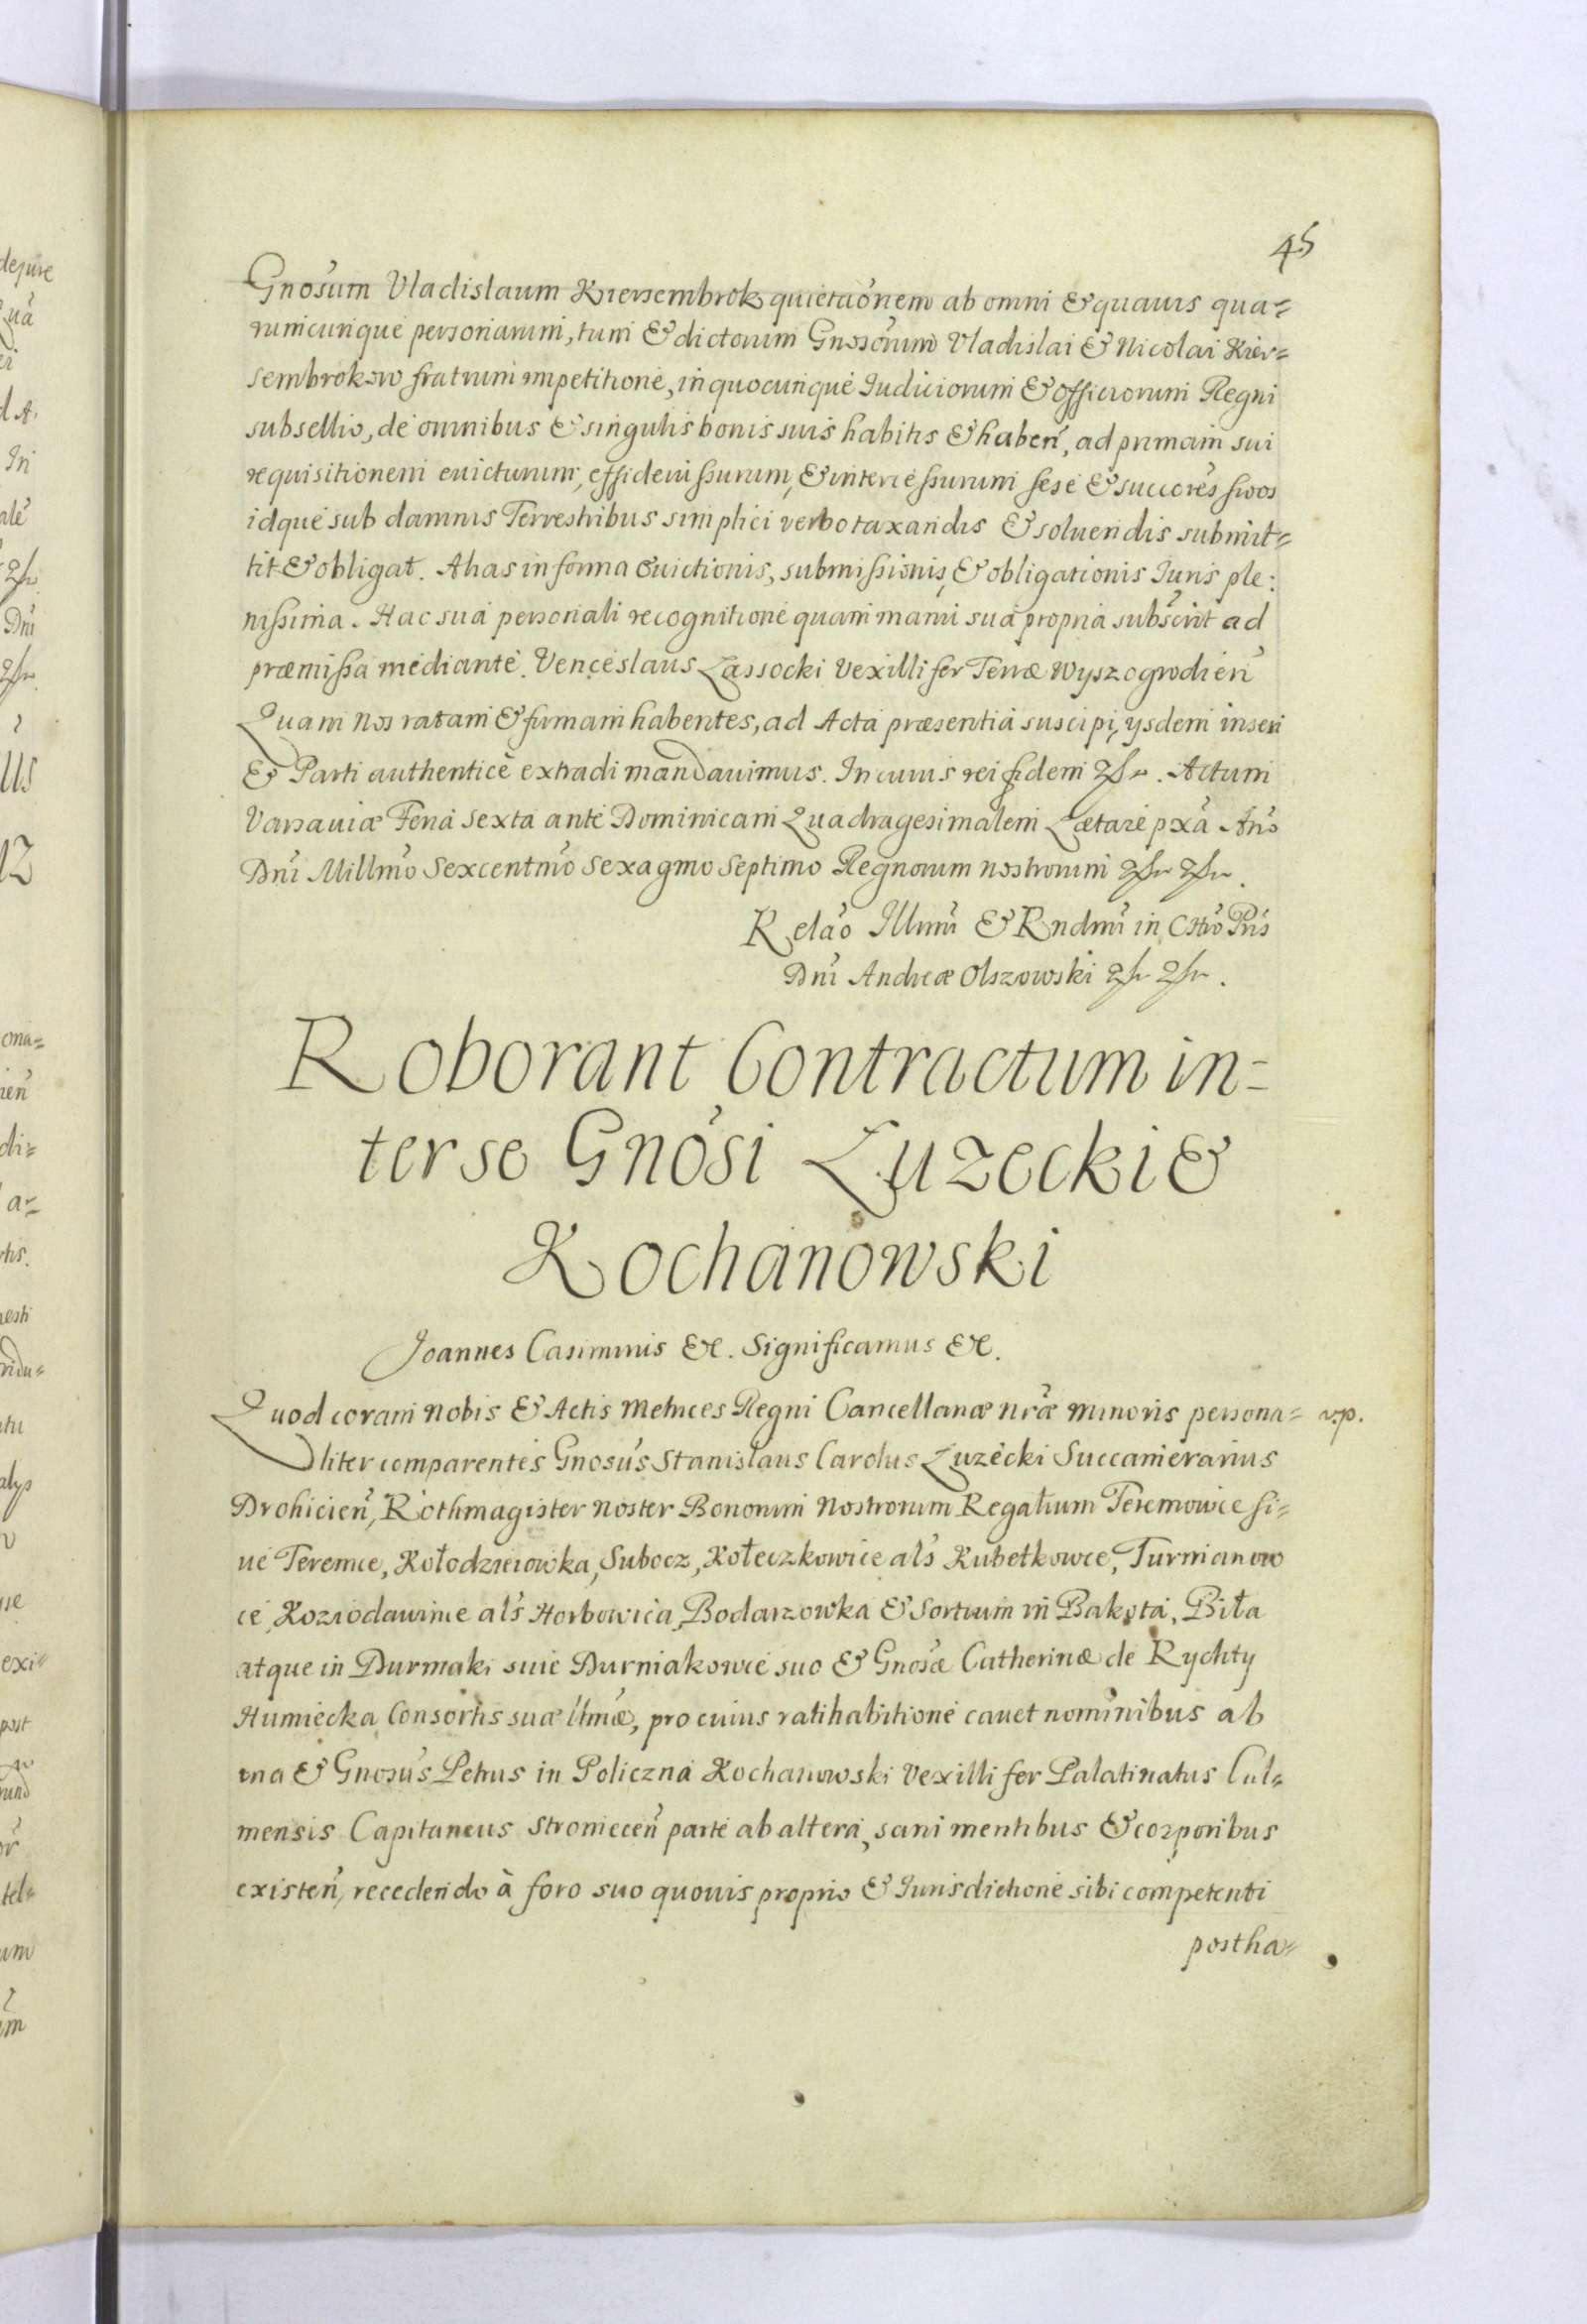 45
Gnosum Vladislaum Kiersembrok quietaonem ab omni & quauis qua=
rumcunque personarum, tum & dictorum Gnosorum Vladislai & Nicolai Kier=
sembrokow fratrum impetitione, in quocunque Iudiciorum & officiorum Regni
subsellio, de omnibus & singulis bonis suis habitis & haben, ad primam sui
requisitionem euicturum, effidemssurum, & intercessurum sese & succores suos
idque sub damnis Terrestribus simplici verbo taxandis & soluendis submit=
tit & obligat. Alias in forma euictionis, submissionis, & obligationis Iuris ple:
nissima. Hac sua personali recognitione quam manu sua propria subscrit ad
præmissa mediante. Venceslaus Lassocki Vexillifer Terræ Wyszogrodien
Quam Nos ratam & firmam habentes, ad Acta præsentia suscipi, ysdem inseri
& Parti authentice extradi mandauimus. In cuius rei fidem. Actum
Varsauiæ Feria Sexta ante Dominicam Quadragesimalem Lætare pxa Ano
Dni Millmo Sexcentmo Sexagmo Septimo Regnorum nostrorum
Relao Illmi & Rndmi in Chro Pris
Dni Andreæ Olszowski
Roborant Contractum in=
ter se Gnosi Luzecki &
Kochanowski
Joannes Casimirus &c. Significamus &c.
Quod coram Nobis & Actis Metrices Regni Cancellariæ nræ minoris persona= v.p.
liter comparentes Gnosus Stanislaus Carolus Luzecki Succamerarius
Drohicien, Rothmagister Noster Bonorum Nostrorum Regalium Teremowce si=
ue Teremce, Kołodzieiowka, Subocz, Kołeczkowice als Kubełkowce, Turmanow
ce, Kozrodawine als Horbowica, Bodarzowka & Sortium in Bakota, Biła
atque in Durmaki siue Durniakowce suo & Gnosæ Catherinæ de Rychty
Humiecka Consortis suæ llmæ, pro cuius ratihabitione cauet nominibus ab
una & Gnosus Petrus in Policzna Kochanowski Vexillifer Palatinatus Cul=
mensis Capitaneus Stromecen parte ab altera, sani mentibus & corporibus
existen, recedendo à foro suo quouis proprio & Iurisdictione sibi competenti
postha=